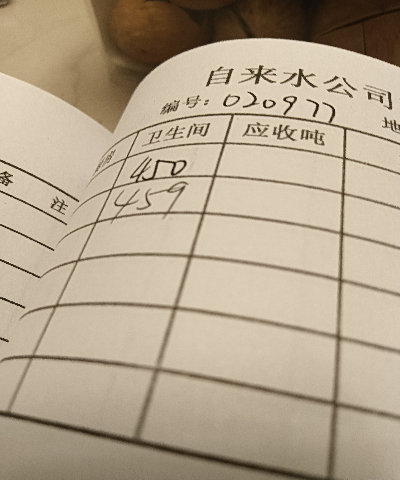 自来水公司
编号: 020977 地
间 卫生间 应收吨
450
459
备注